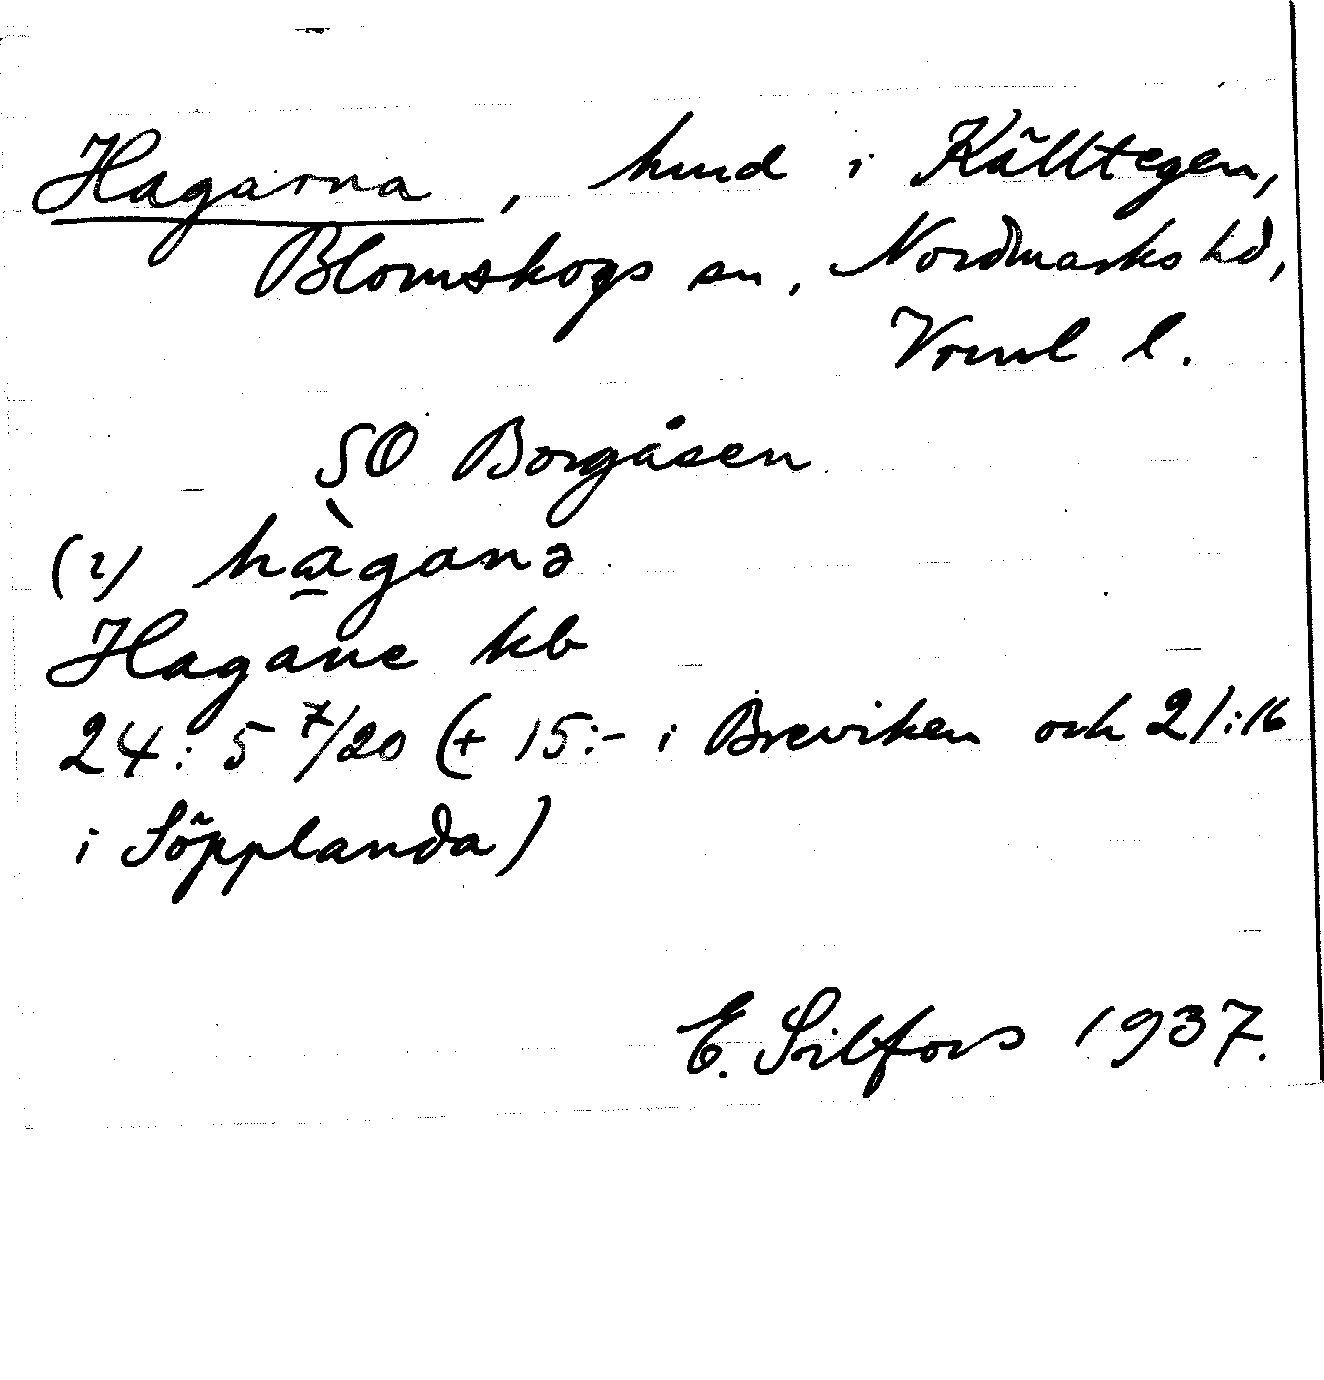 Hagarna, hmd i Källtegen,
Blomskogs sn, Nordmarks hd,
Vrml l.
SO Borgåsen
(i) hàganə
Hagane kb
24:5 7/20 (+ 15:- i Breviken och 21:16
i Söpplanda)
E. Silfors 1937.